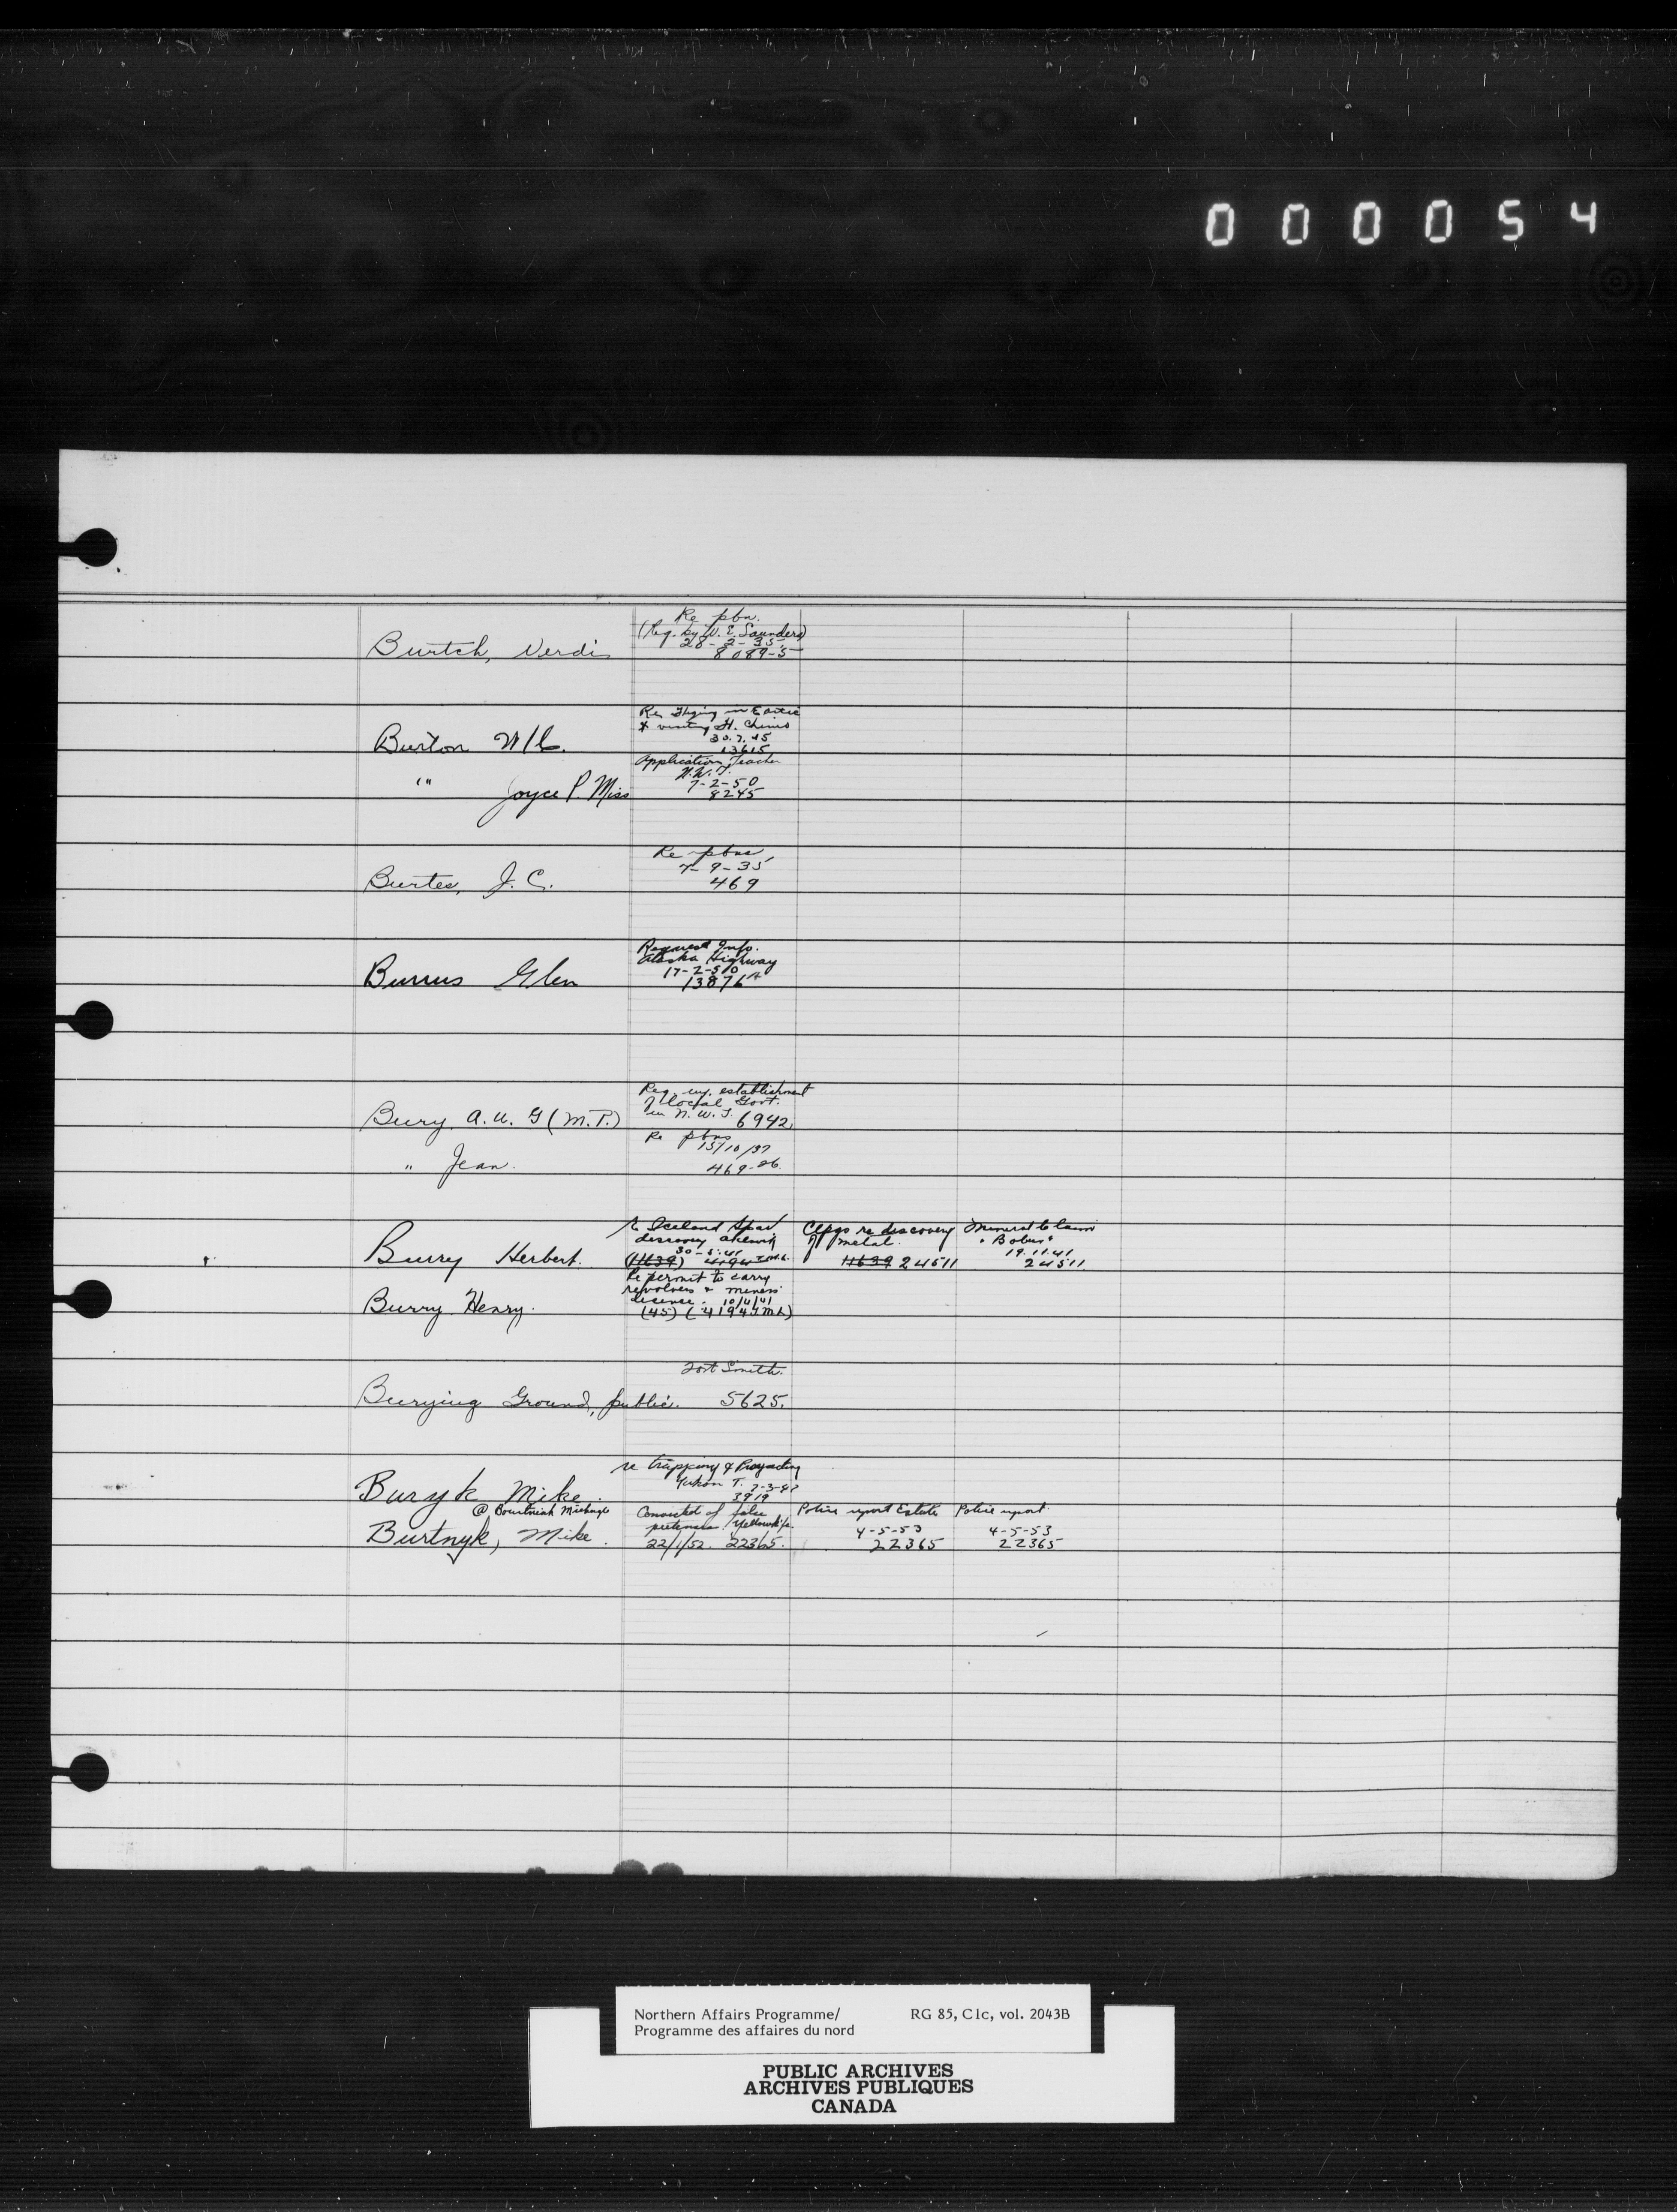 000054
Re pbn.
(Req. by W. E. Saunders)
28-2-35.
Burtch, Verdi 8089-5
& visiting Ft. Chimo
30.7.45
Burton 13615
Application Teacher
N.W.T.
7-2-50
" Joyce P. Miss 8245
Re pbns
7-9-35
Burtes, J. C. 469
Request Info.
Alaska Highway
17-2-50
Burrus Glen 13876A
Req. establishment
of local Govt.
Bury A. U. G (M.P.) in N.W.T. 6942
Re pbns
15/10/37
" Jean. 469-26.
re Iceland Spar Clpgs re discovery Mineral Claim
discovery of metal.
30-5-41 19.11.41
Burry Herbert. (11639) 4194 11639 24511 24511
Re permit to carry
revolvers & miners
license. 10/4/41
Burry Henry. (45) (4194 )
Fort Smith.
Burying Ground, public. 5625.
re trapping & Prospecting
Yukon T.
Buryk Mike 3919
@ Michael Convicted of false Police report Estate Police report
pretenses Yellowkfe. 4-5-53 4-5-53
Burtnyk, Mike. 22/1/52. 22365. 22365 22365
Northern Affairs Programme/ RG 85, C1c, vol. 2043B
Programme des affaires du nord
PUBLIC ARCHIVES
ARCHIVES PUBLIQUES
CANADA